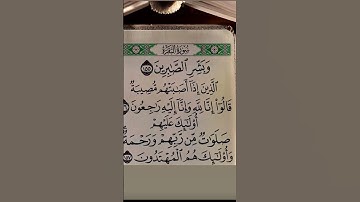 سُورَةُ البَقَرَةِ
وَبَشِّرِ الصَّابِرِينَ ١٥٥
الَّذِينَ إِذَا أَصَابَتْهُم مُّصِيبَةٌ
قَالُوٓا۟ إِنَّا لِلَّهِ وَإِنَّآ إِلَيْهِ رَٰجِعُونَ ١٥٦
أُو۟لَـٰٓئِكَ عَلَيْهِمْ
صَلَوَٰتٌ مِّن رَّبِّهِمْ وَرَحْمَةٌ
وَأُو۟لَـٰٓئِكَ هُمُ الْمُهْتَدُونَ ١٥٧